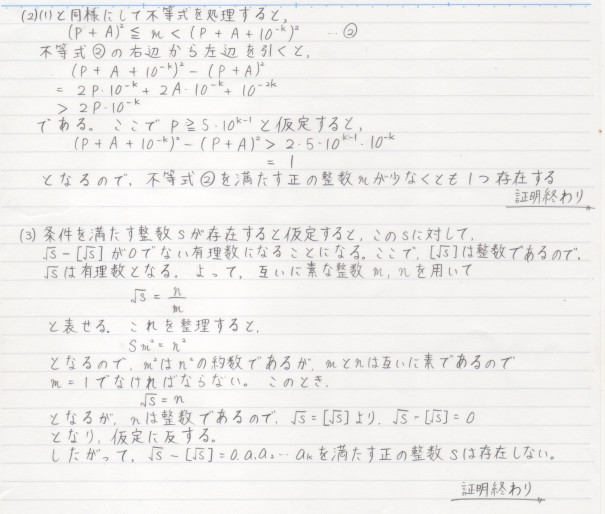 (2)(1)と同様にして不等式を処理すると,
(P + A)² ≦ n < (P + A + 10⁻ᵏ)² …②
不等式②の右辺から左辺を引くと,
(P + A + 10⁻ᵏ)² - (P + A)²
= 2P・10⁻ᵏ + 2A・10⁻ᵏ + 10⁻²ᵏ
> 2P・10⁻ᵏ
である。ここで P ≧ 5・10ᵏ⁻¹ と仮定すると,
(P + A + 10⁻ᵏ)² - (P + A)² > 2・5・10ᵏ⁻¹・10⁻ᵏ
= 1
となるので, 不等式②を満たす正の整数 n が少なくとも 1つ存在する
証明終わり
(3) 条件を満たす整数 S が存在すると仮定すると, この S に対して,
√S - [√S] が 0 でない有理数になることになる。ここで, [√S] は整数であるので,
√S は有理数となる. よって, 互いに素な整数 m, n を用いて
√S = n/m
と表せる. これを整理すると,
Sm² = n²
となるので, m² は n² の約数であるが, m と n は互いに素であるので
m = 1 でなければならない。このとき,
√S = n
となるが, n は整数であるので, √S = [√S] より, √S - [√S] = 0
となり, 仮定に反する。
したがって, √S - [√S] = 0.a₁a₂…aₖ を満たす正の整数 S は存在しない。
証明終わり